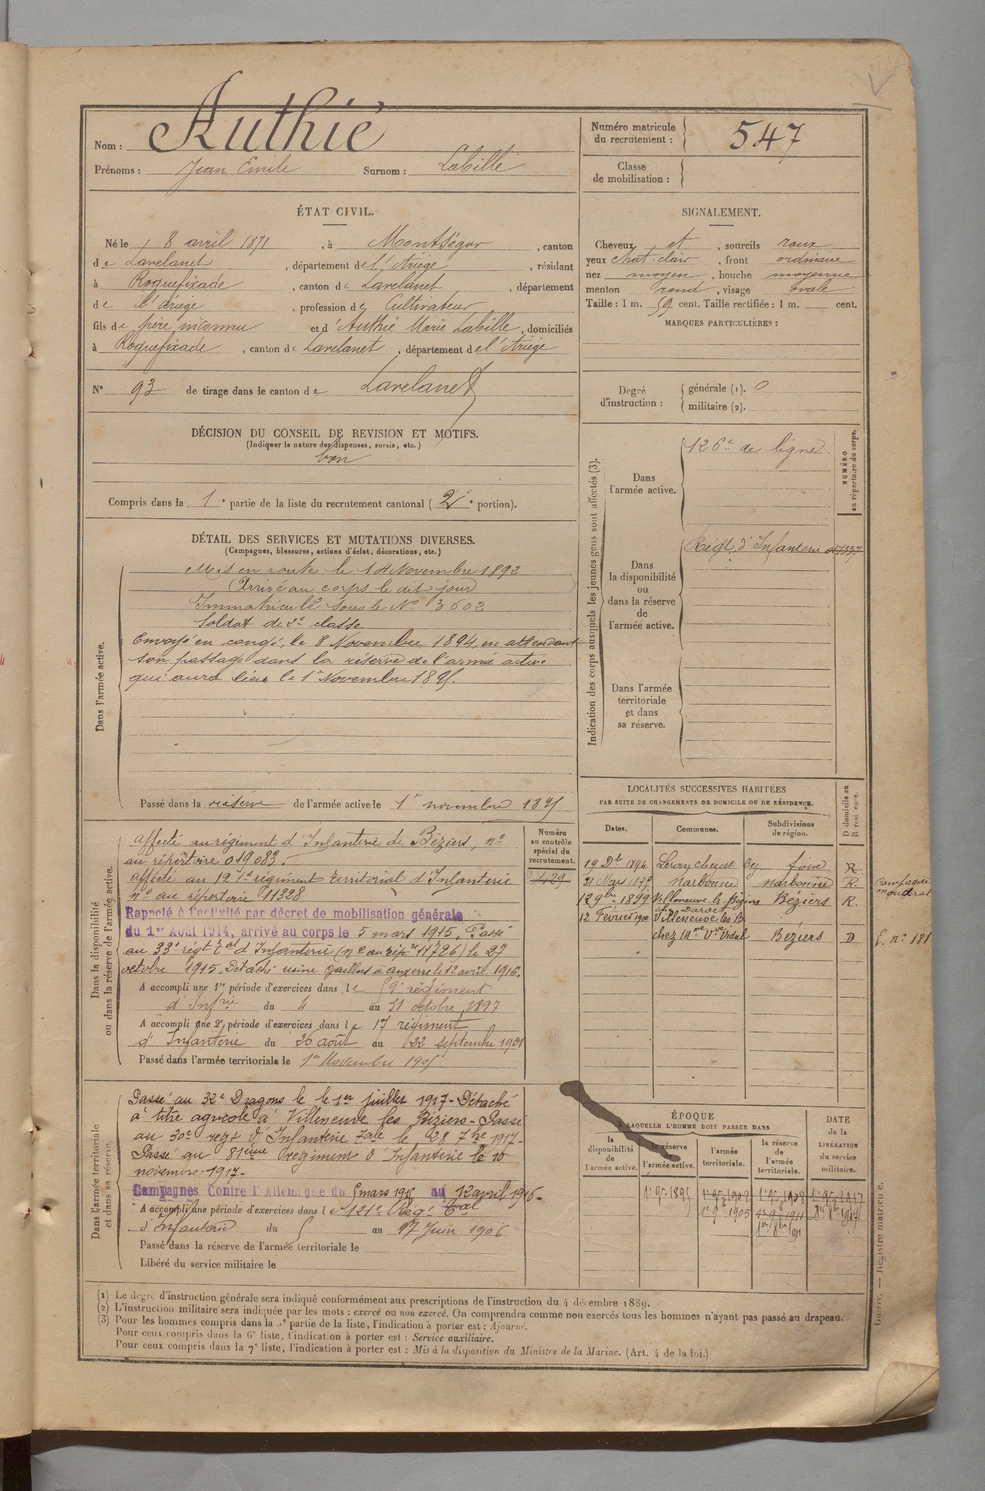 Nom : Authié
Prénoms : Jean Emile Surnom : Labille
Numéro matricule du recrutement : 547
Classe de mobilisation :
ÉTAT CIVIL.
Né le 8 avril 1871, à Montségur, canton
de Lavelanet, département de l'Ariège, résidant
à Roquefixade, canton de Lavelanet, département
de l'Ariège, profession de Cultivateur
fils de père inconnu et d'Authié Marie Labille, domiciliés
à Roquefixade, canton de Lavelanet, département de l'Ariège
N° 93 de tirage dans le canton de Lavelanet
SIGNALEMENT.
Cheveux et, sourcils roux
yeux chat. clair, front ordinaire
nez moyen, bouche moyenne
menton rond, visage ovale
Taille : 1 m. 59 cent. Taille rectifiée : 1 m. cent.
MARQUES PARTICULIÈRES :
Degré d'instruction : générale (1). 0
militaire (2).
DÉCISION DU CONSEIL DE REVISION ET MOTIFS.
(Indiquer la nature des dispenses, sursis, etc.)
bon
Compris dans la 1e partie de la liste du recrutement cantonal (2e portion).
DÉTAIL DES SERVICES ET MUTATIONS DIVERSES.
(Campagnes, blessures, actions d'éclat, décorations, etc.)
Dans l'armée active.
Mis en route le 14 Novembre 1892
Arrivé au corps le dit jour
Immatriculé sous le N° 3603
Soldat de 2e classe
Envoyé en congé, le 8 Novembre 1894, en attendant
son passage dans la réserve de l'armée active
qui aura lieu le 1er Novembre 1895.
Passé dans la réserve de l'armée active le 1er novembre 1895
Indication des corps auxquels les jeunes gens sont affectés (3).
NUMÉRO au répertoire du corps.
Dans l'armée active.
126e de ligne
Dans la disponibilité ou dans la réserve de l'armée active.
Régt d'Infanterie
Dans l'armée territoriale et dans sa réserve.
LOCALITÉS SUCCESSIVES HABITÉES
PAR SUITE DE CHANGEMENTS DE DOMICILE OU DE RÉSIDENCE.
Dates. Communes. Subdivisions de région. D domicile ou R résidence.
foix R
21 Mars 1895 Narbonne Narbonne R.
1899 Villeneuve-les-Béziers Béziers R.
12 Février Villeneuve les B.
chez Mme Vve Vidal Béziers D
Dans la disponibilité ou dans la réserve de l'armée active.
Numéro au contrôle spécial du recrutement.
affecté au régiment d'Infanterie de Béziers, n°
au répertoire 019083.
affecté au 121e régiment territorial d'Infanterie
n° au répertoire 11328
Rappelé à l'activité par décret de mobilisation générale
du 1er Août 1914, arrivé au corps le 5 mars 1915, Passé
au 33e régt tal d'Infanterie le 27
octobre 1915. Détaché usine 12 avril 1916.
A accompli une 1re période d'exercices dans le régiment
d'Infrie du 4 au 31 octobre 1897
A accompli une 2e période d'exercices dans le 17 régiment
d'Infanterie du 26 août au 22 septembre 1901
Passé dans l'armée territoriale le 1er Novembre 1905
Dans l'armée territoriale et dans sa réserve.
Passé au 32e Dragons le 1er juillet 1917 - Détaché
à titre agricole à Villeneuve les Béziers - Passé
au 30e régt d'Infanterie tale le 28 7bre 1917 -
Passé au 81ème régiment d'Infanterie le 10
novembre 1917 -
Campagnes Contre l'Allemagne du 5 mars 1915 au 12 avril 1916 -
A accompli une période d'exercices dans le 121e Régt tal
d'Infanterie du au 17 Juin 1906
Passé dans la réserve de l'armée territoriale le
Libéré du service militaire le
ÉPOQUE
À LAQUELLE L'HOMME DOIT PASSER DANS
la disponibilité de l'armée active. la réserve de l'armée active. l'armée territoriale. la réserve de l'armée territoriale.
DATE de la LIBÉRATION du service militaire.
1er 9bre 1895
(1) Le degré d'instruction générale sera indiqué conformément aux prescriptions de l'instruction du 4 décembre 1889.
(2) L'instruction militaire sera indiquée par les mots : exercé ou non exercé. On comprendra comme non exercés tous les hommes n'ayant pas passé au drapeau.
(3) Pour les hommes compris dans la 5e partie de la liste, l'indication à porter est : Ajourné.
Pour ceux compris dans la 6e liste, l'indication à porter est : Service auxiliaire.
Pour ceux compris dans la 7e liste, l'indication à porter est : Mis à la disposition du Ministre de la Marine. (Art. 4 de la loi.)